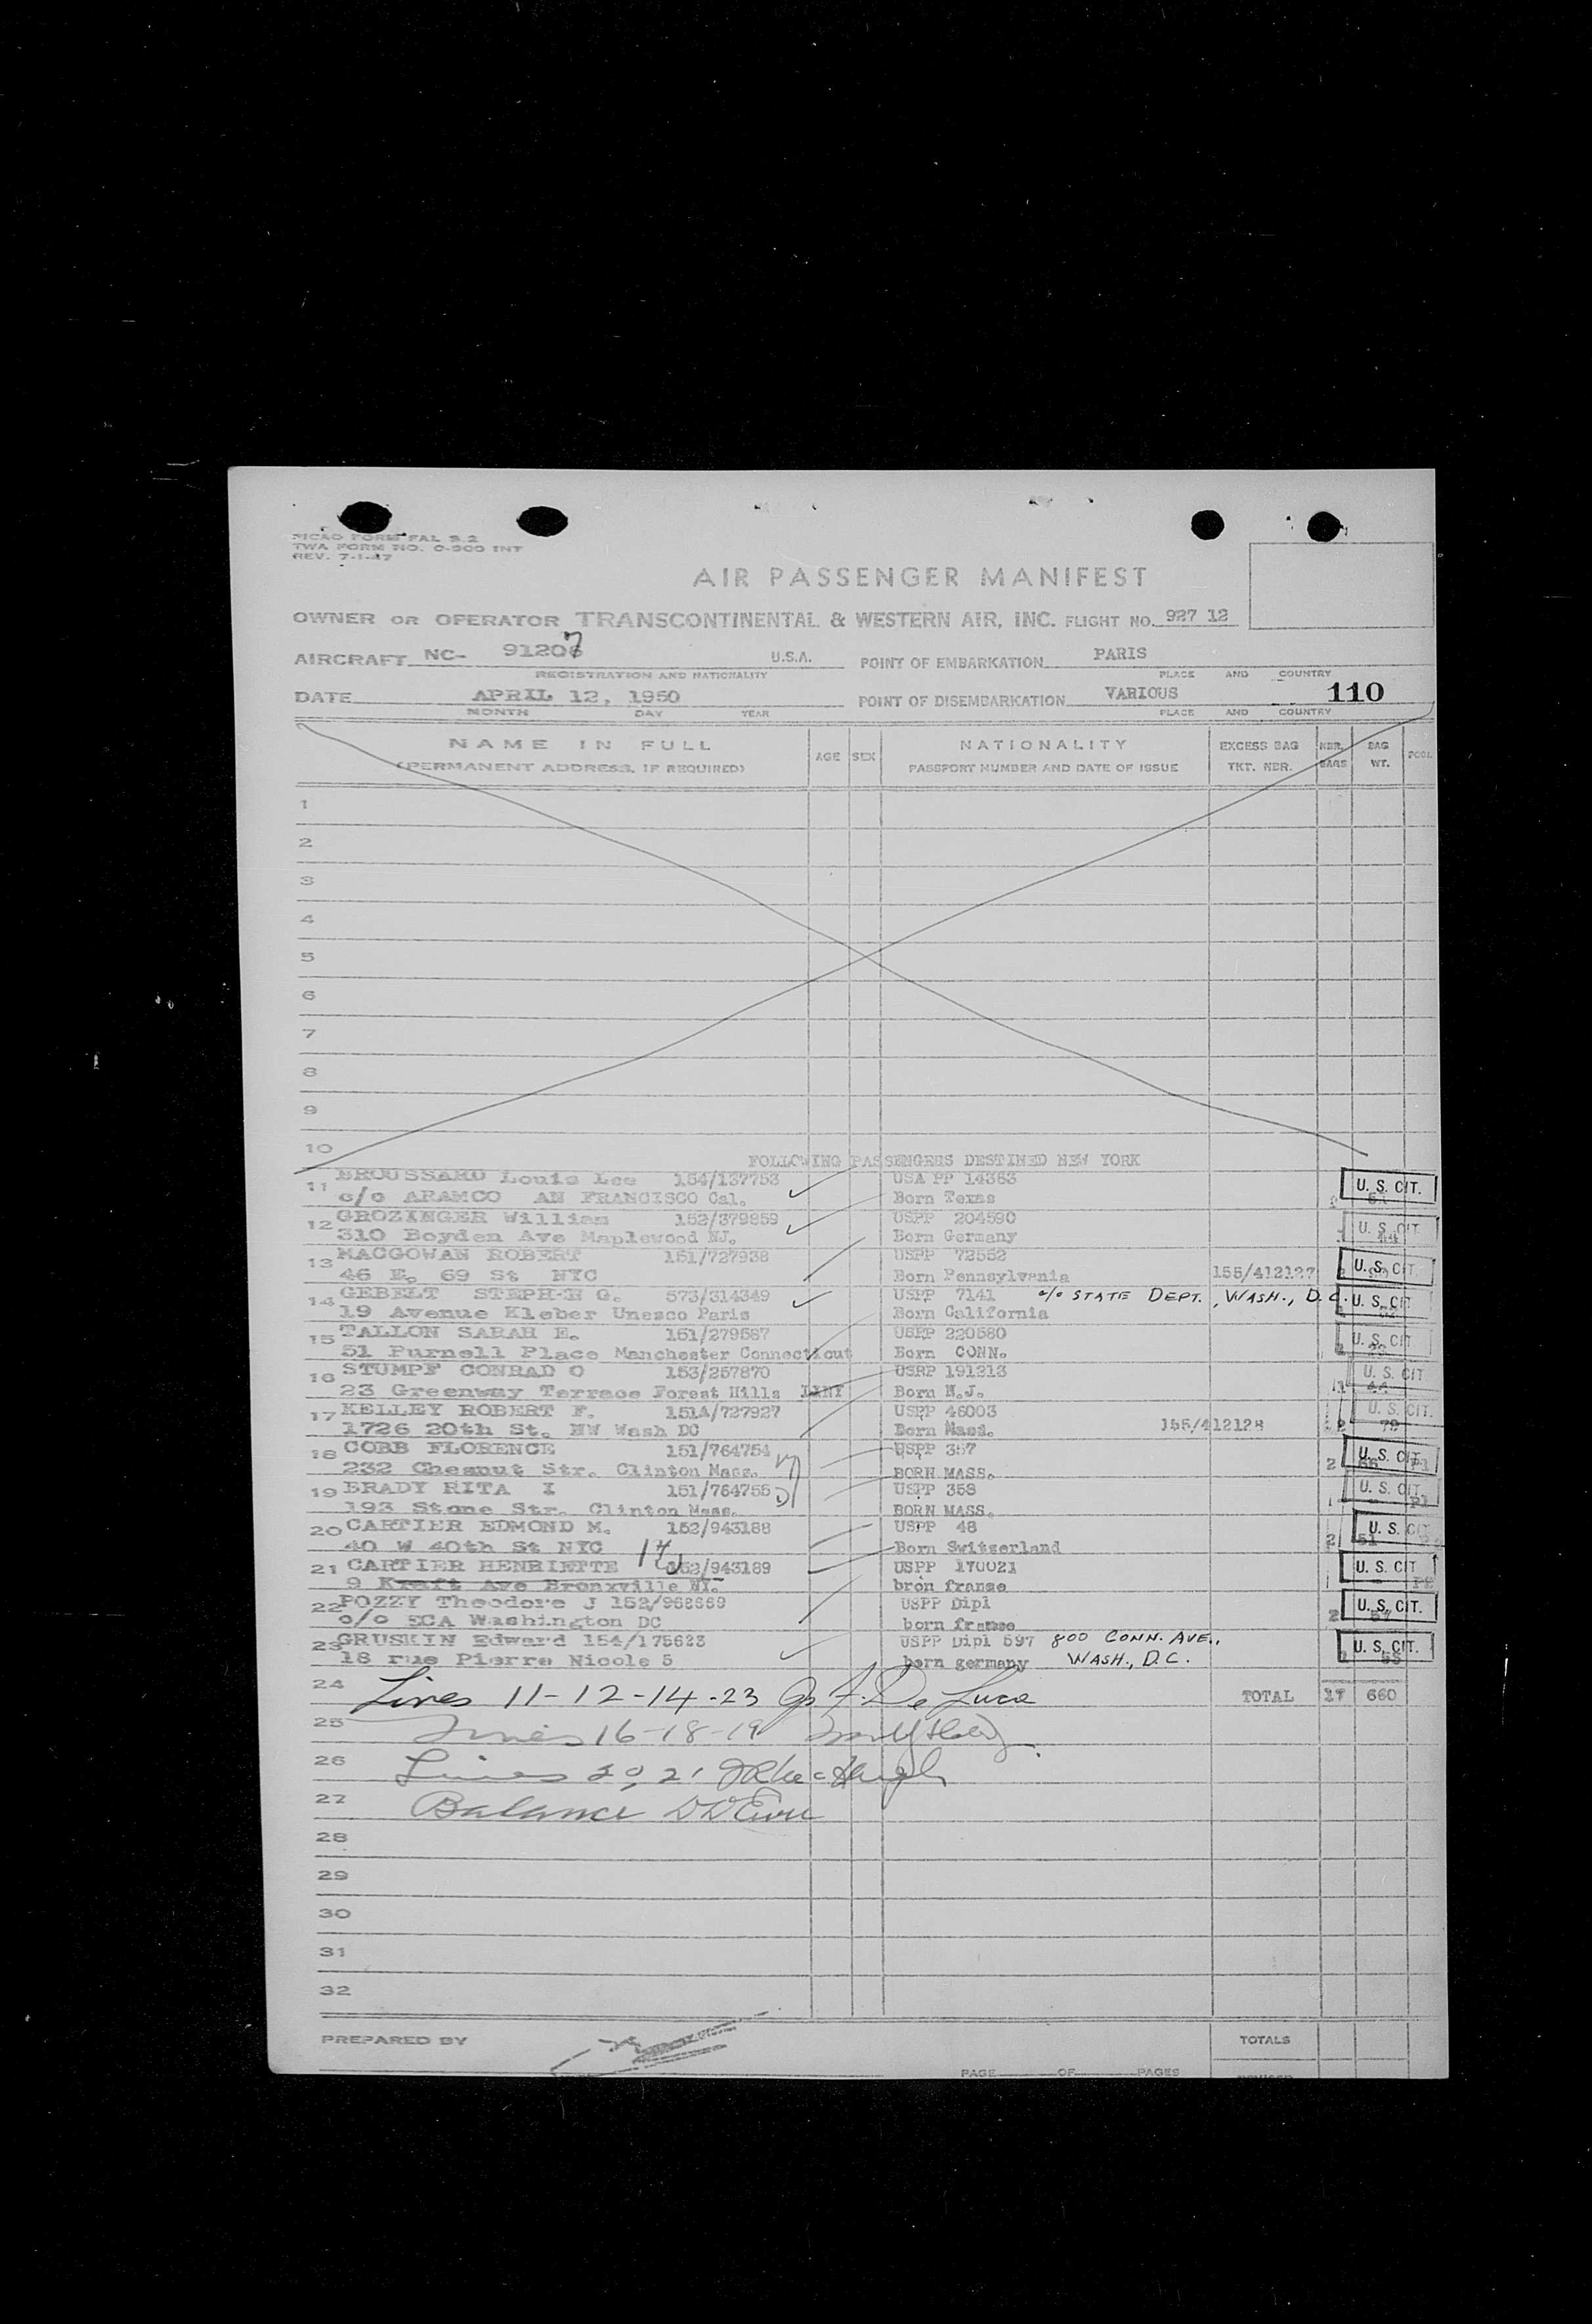 PICAO FORM FAL 9.2
TWA FORM NO. O-900 INT
REV. 7-1-47
AIR PASSENGER MANIFEST
OWNER OR OPERATOR TRANSCONTINENTAL & WESTERN AIR, INC. FLIGHT NO. 927 12
AIRCRAFT NC- 91207 U.S.A. POINT OF EMBARKATION PARIS
REGISTRATION AND NATIONALITY PLACE AND COUNTRY
DATE APRIL 12, 1950 POINT OF DISEMBARKATION VARIOUS 110
MONTH DAY YEAR PLACE AND COUNTRY
NAME IN FULL AGE SEX NATIONALITY EXCESS BAG NBR. BAG POOL
(PERMANENT ADDRESS, IF REQUIRED) PASSPORT NUMBER AND DATE OF ISSUE TKT. NBR. BAGS WT.
1
2
3
4
5
6
7
8
9
10
FOLLOWING PASSENGERS DESTINED NEW YORK
11 BROUSSARD Louis Lee 154/137753 USA PP 14363 U. S. CIT.
c/o ARAMCO AN FRANCISCO Cal. Born Texas
12 GROZINGER William 152/379859 USPP 204590 U. S. CIT
310 Boyden Ave Maplewood NJ. Born Germany
13 MACGOWAN ROBERT 151/727938 USPP 72552 U. S. CIT.
46 E. 69 St NYC Born Pennsylvania 155/412127
14 GEBELT STEPH-N G. 573/314349 USPP 7141 c/o STATE DEPT., WASH., D.C. U. S. CIT
19 Avenue Kleber Unesco Paris Born California
15 TALLON SARAH E. 151/279567 USPP 220580 U. S. CIT
51 Purnell Place Manchester Connecticut Born CONN.
16 STUMPF CONRAD O 153/257870 USPP 191213 U. S. CIT
23 Greenway Terrace Forest Hills Born N.J.
17 KELLEY ROBERT F. 151A/727927 USPP 46003 U. S. CIT.
1726 20th St. NW Wash DC Born Mass. 155/412128 2 79
18 COBB FLORENCE 151/764754 USPP 357 U. S. CIT
232 Chesnut Str. Clinton Mass. BORN MASS. 2 66 P1
19 BRADY RITA I 151/764755 USPP 358 U. S. CIT
193 Stone Str. Clinton Mass. BORN MASS. P1
20 CARTIER EDMOND M. 152/943188 USPP 48 U. S. CIT
40 W 40th St NYC Born Switzerland 2 51
21 CARTIER HENRIETTE 152/943189 USPP 170021 U. S. CIT
9 Kraft Ave Bronxville NY. bron franse
22 POZZY Theodore J 152/968669 USPP Dipl U. S. CIT.
c/o ECA Washington DC born franse 2 57
23 GRUSKIN Edward 154/175623 USPP Dipl 597 800 CONN. AVE., U. S. CIT.
18 rue Pierre Nicole 5 born germany WASH., D.C.
24 Lines 11-12-14-23 De Luca TOTAL 17 660
25 Lines 16-18-19
26 Lines 20, 21
27 Balance
28
29
30
31
32
PREPARED BY TOTALS
PAGE OF PAGES